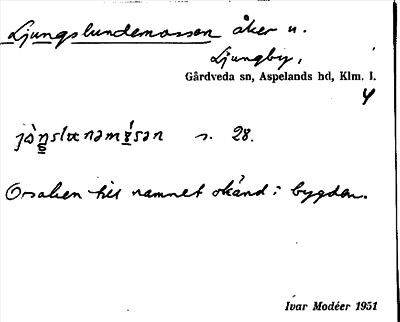 Ljungslundemossen åker u.
Ljungby,
Gårdveda sn, Aspelands hd, Klm. l.
4
s. 28.
Orsaken till namnet okänd i bygden.
Ivar Modéer 1951